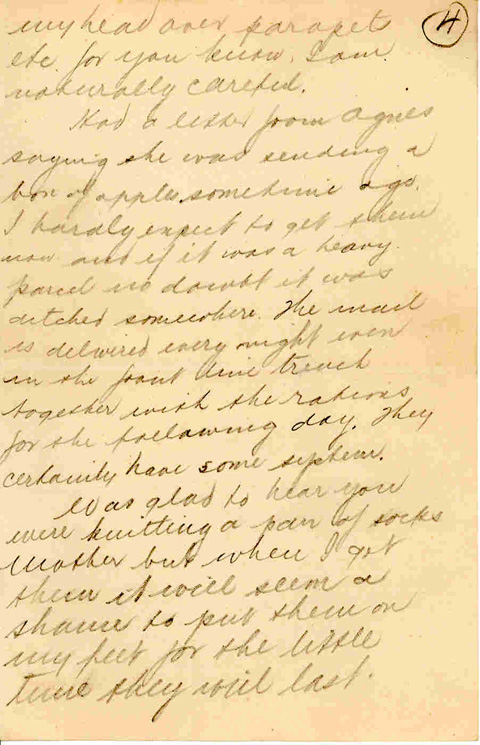 4
my head over parapet
etc for you know I am
naturally careful.
Had a letter from Agnes
saying she was sending a
box of apples sometime ago.
I hardly expect to get them
now and if it was a heavy
parcel no doubt it was
ditched somewhere. The mail
is delivered every night even
in the front line trench
together with the rations
for the following day. They
certainly have some system.
Was glad to hear you
were knitting a pair of socks
Mother but when I get
them it will seem a
shame to put them on
my feet for the little
time they will last.